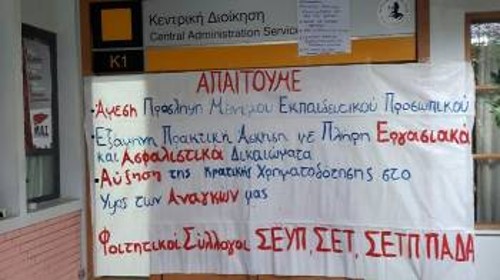 Κεντρική Διοίκηση
Central Administration Service
K1
ΑΠΑΙΤΟΥΜΕ
-Άμεση Πρόσληψη Μόνιμου Εκπαιδευτικού Προσωπικού
-Εξάμηνη Πρακτική Άσκηση με Πλήρη Εργασιακά
και Ασφαλιστικά Δικαιώματα
-Αύξηση της Κρατικής Χρηματοδότησης στο
Ύψος των Αναγκών μας
Φοιτητικοί Σύλλογοι ΣΕΥΠ, ΣΕΤ, ΣΕΤΠ ΠΑΔΑ